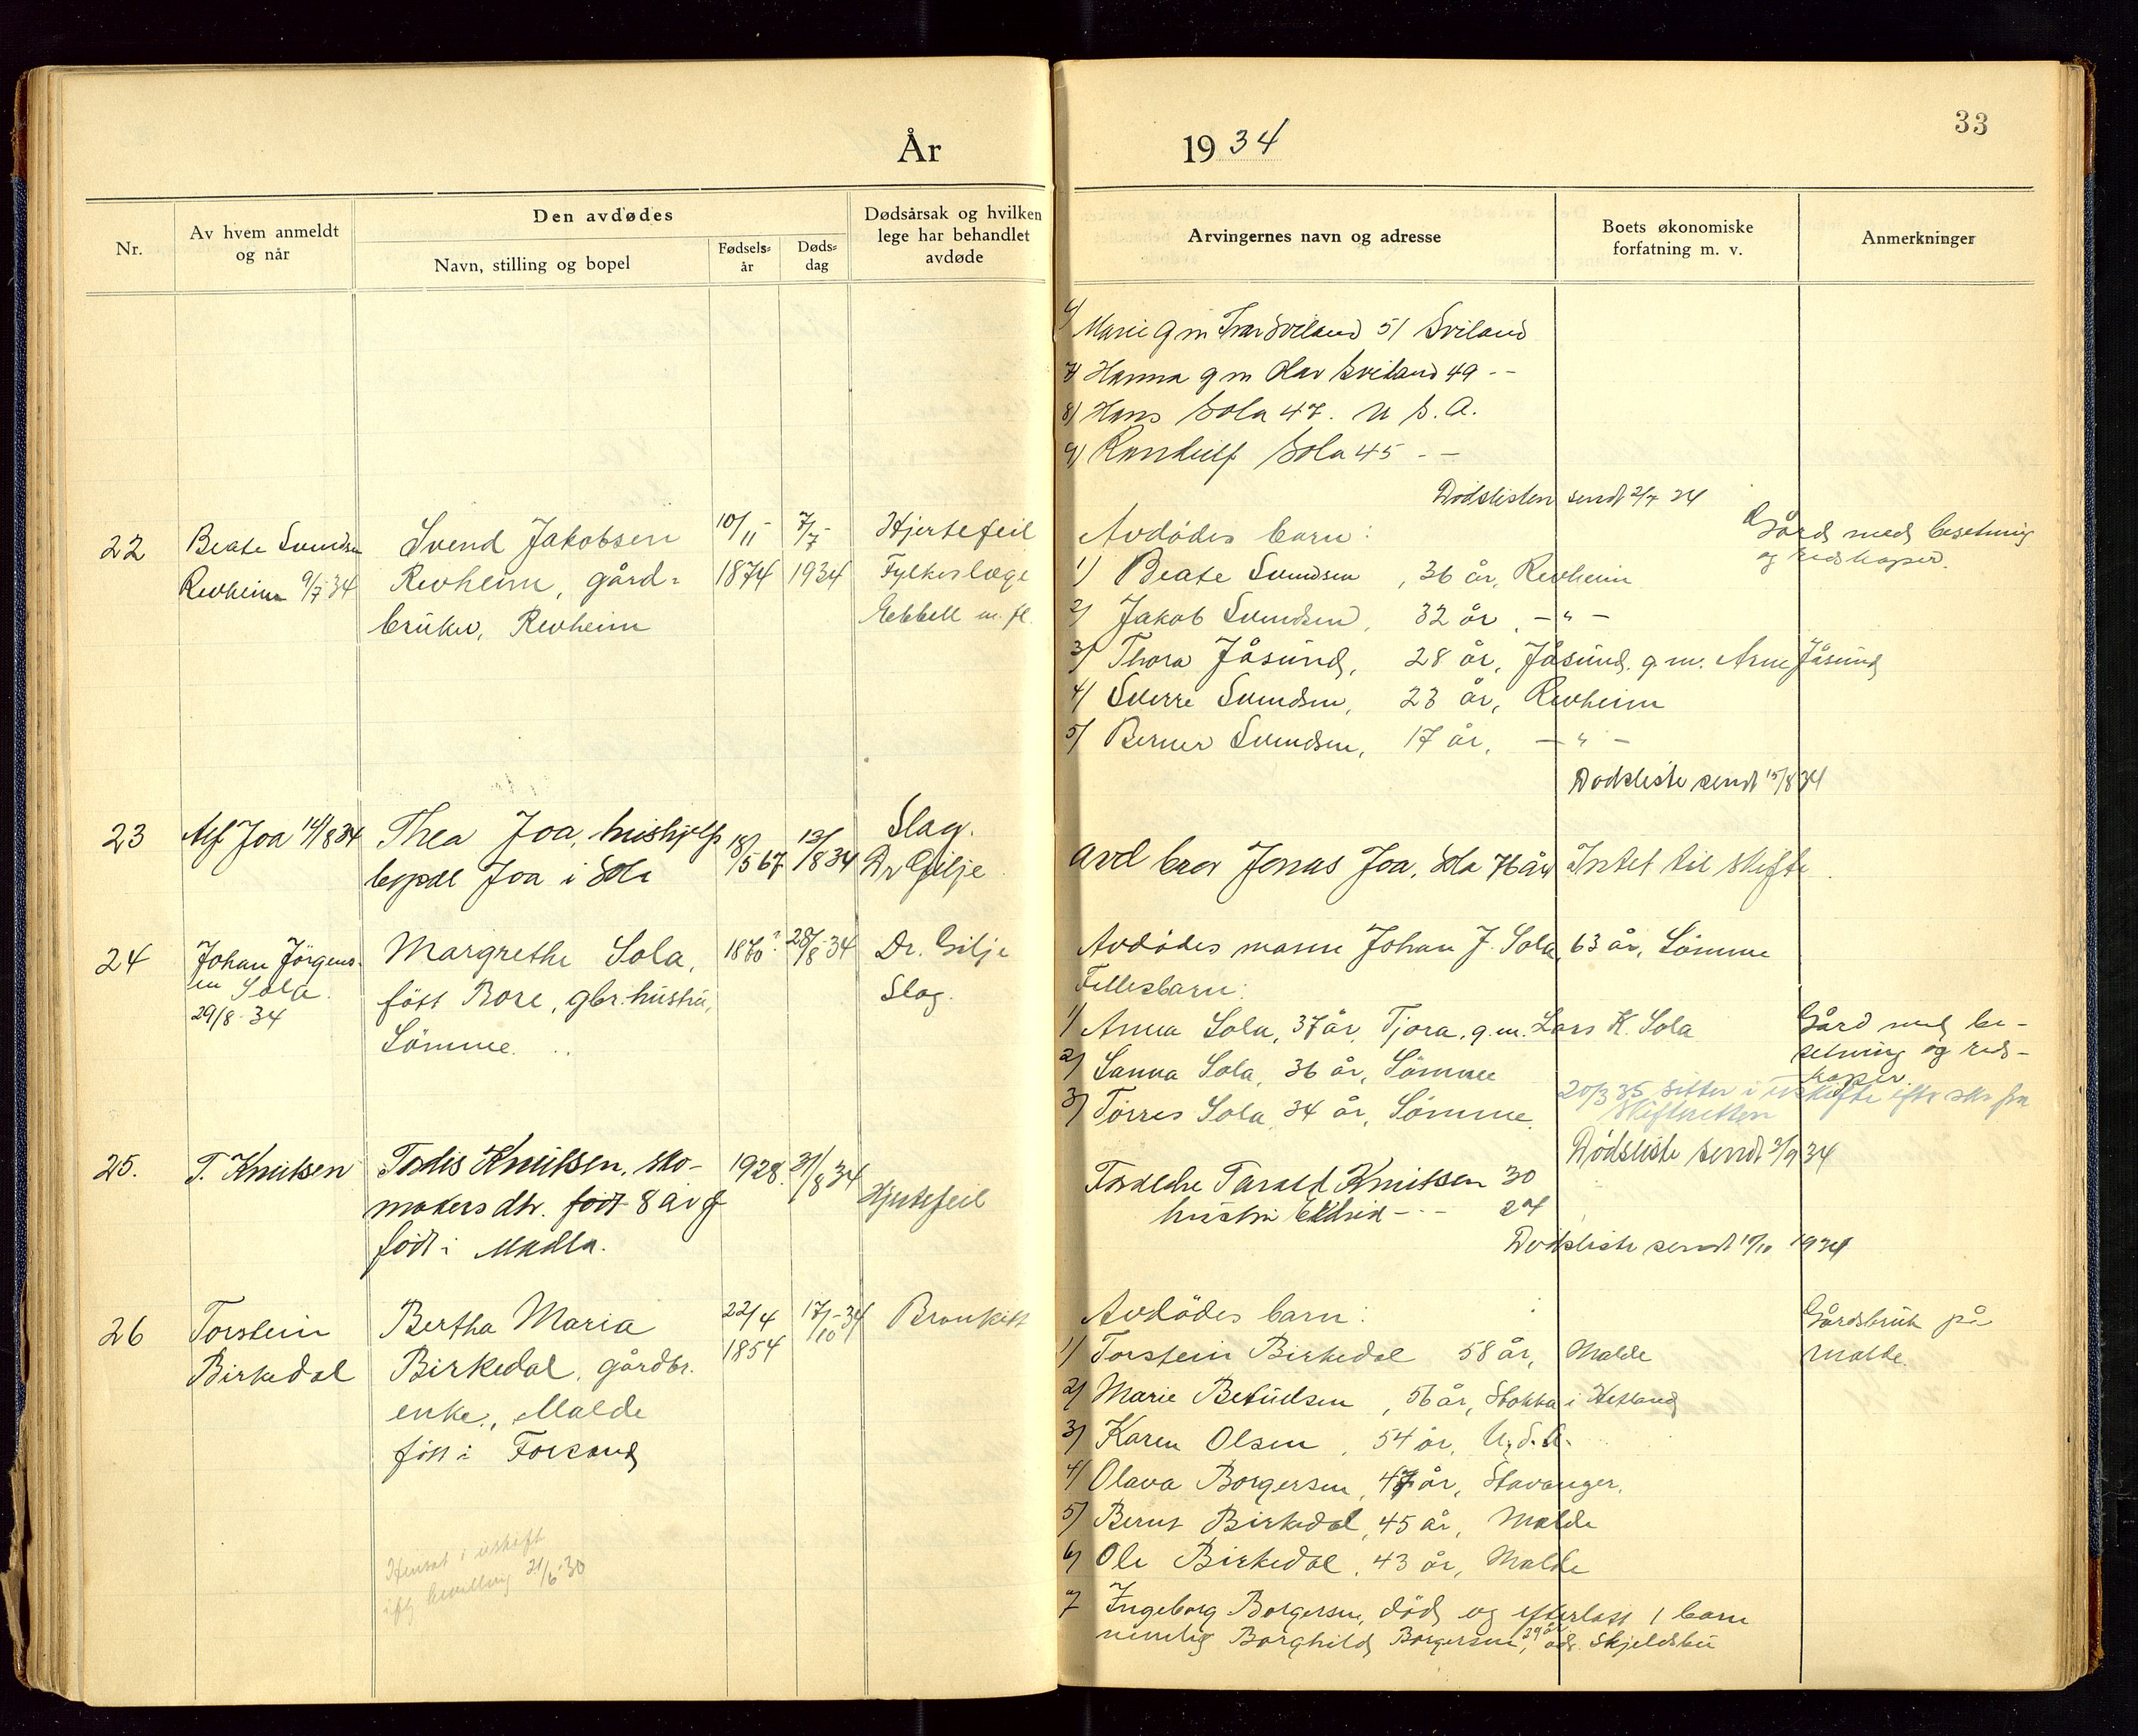 33
År
19 34
Nr.
Av hvem anmeldt
og når
Den avdødes
Navn, stilling og bopel
Fødsels-
år
Døds-
dag
Dødsårsak og hvilken
lege har behandlet
avdøde
Arvingernes navn og adresse
Boets økonomiske
forfatning m. v.
Anmerkninger
6) Marie g m Ivar Sviland 51 Sviland
7) Hanna g m Olav Sviland 49 - -
8) Hans Sola 47. U. S. A.
9) Sola 45 - -
Dödslisten sendt 2/7 34
22
Beate Svendsen
Revheim 9/7 34
Svend Jakobsen
Revheim, gård-
bruker, Revheim
10/11 -
1874
7/7 -
1934
Hjertefeil
Fylkeslæge
Ebbell m. fl.
Avdödes barn:
1) Beate Svendsen, 36 år, Revheim
2) Jakob Svendsen, 32 år, - " -
3) Thora Jåsund, 28 år, Jåsund, g. m. Arne Jåsund
4) Sverre Svendsen, 23 år, Revheim
5) Berner Svendsen, 17 år, - " -
Gård med besetning
og redskaper.
Dødsliste sendt 15/8 34
23
Alf Joa 14/8 34
Thea Joa, hushjelp
bopæl Joa i Sola
18/5 67
13/8 34
Slag.
Dr Gilje
Avd bror Jonas Joa, Sola 76 år
Intet til skifte.
24
Johan Jörgen-
sen Sola.
29/8 - 34
Margrethe Sola,
född Bore, gbr. hustru,
Sömme.
28/8 - 34
Dr. Gilje
Slag.
Avdödes mann Johan J. Sola, 63 år, Sömme
Fellesbarn:
1) Anna Sola, 37 år, Tjora, g. m. Lars K. Sola
2) Sanna Sola, 36 år, Sömme
3) Torres Sola, 34 år, Sömme.
Gård med be-
setning og red-
skaper.
20/3 35 sitter i uskifte efter skr fra
skifteretten
Dödsliste sendt 3/9 34
25.
T. Knutsen
Todis Knutsen, sko-
makers dtr. født 8 år g
født i Madla.
1928.
31/8 34
Hjertefeil
Foreldre Tarald Knutsen 30
hustru - - -
Dödsliste sendt 1934
26
Torstein
Birkedal
Bertha Maria
Birkedal, gårdbr.
enke, Malde
född i Forsand
22/4
1854
17/10 - 34
Bronkitt
Avdödes barn:
1) Torstein Birkedal 58 år, Malde
2) Marie Betuelsen, 56 år, Stokka i Hetland
3) Karen Olsen, 54 år, U. S. A.
4) Olava Borgersen, 47 år, Stavanger.
5) Bernt Birkedal, 45 år, Malde
6) Ole Birkedal, 43 år, Malde
7 Ingeborg Borgersen, död og efterlatt 1 barn
nemlig Borghild Borgersen, 29 år, adr. Skjeldsbu
Gårdsbruk på
Malde.
Hensat i uskift
iflg bevilling 21/6 - 30